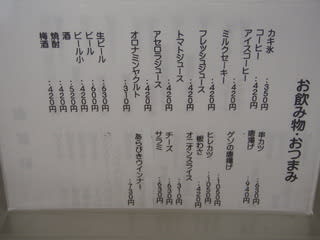 お飲み物・おつまみ
カキ氷 …350円
コーヒー …420円
アイスコーヒー …420円
ミルクセーキー …420円
フレッシュジュース …420円
トマトジュース …420円
アセロラジュース …420円
オロナミンヤクルト …310円
生ビール …630円
ビール …600円
ビール小 …420円
酒 …420円
焼酎 …420円
梅酒 …420円
串カツ
唐揚げ …940円
ゲソの唐揚げ
ヒレカツ
板わさ
オニオンスライス …310円
チーズ …630円
サラミ …630円
あらびきウインナー …730円